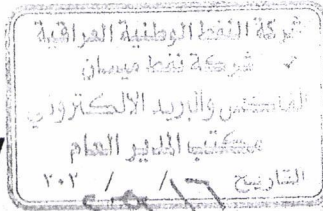 شركة النفط الوطنية العراقية
شركة نفط ميسان
الفاكس والبريد الالكتروني
مكتب المدير العام
التاريخ / / ٢٠٢